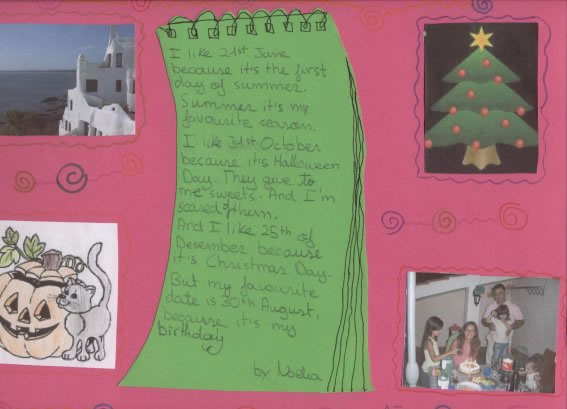 I like 21st June
because it's the first
day of summer.
Summer it's my
favourite season.
I like 31st October
because it's Halloween
Day. They give to
me sweets. And I'm
scared of them.
And I like 25th of
Desember because
it's Christmas Day.
But my favourite
date is 30th August,
because it's my
birthday
by Noelia